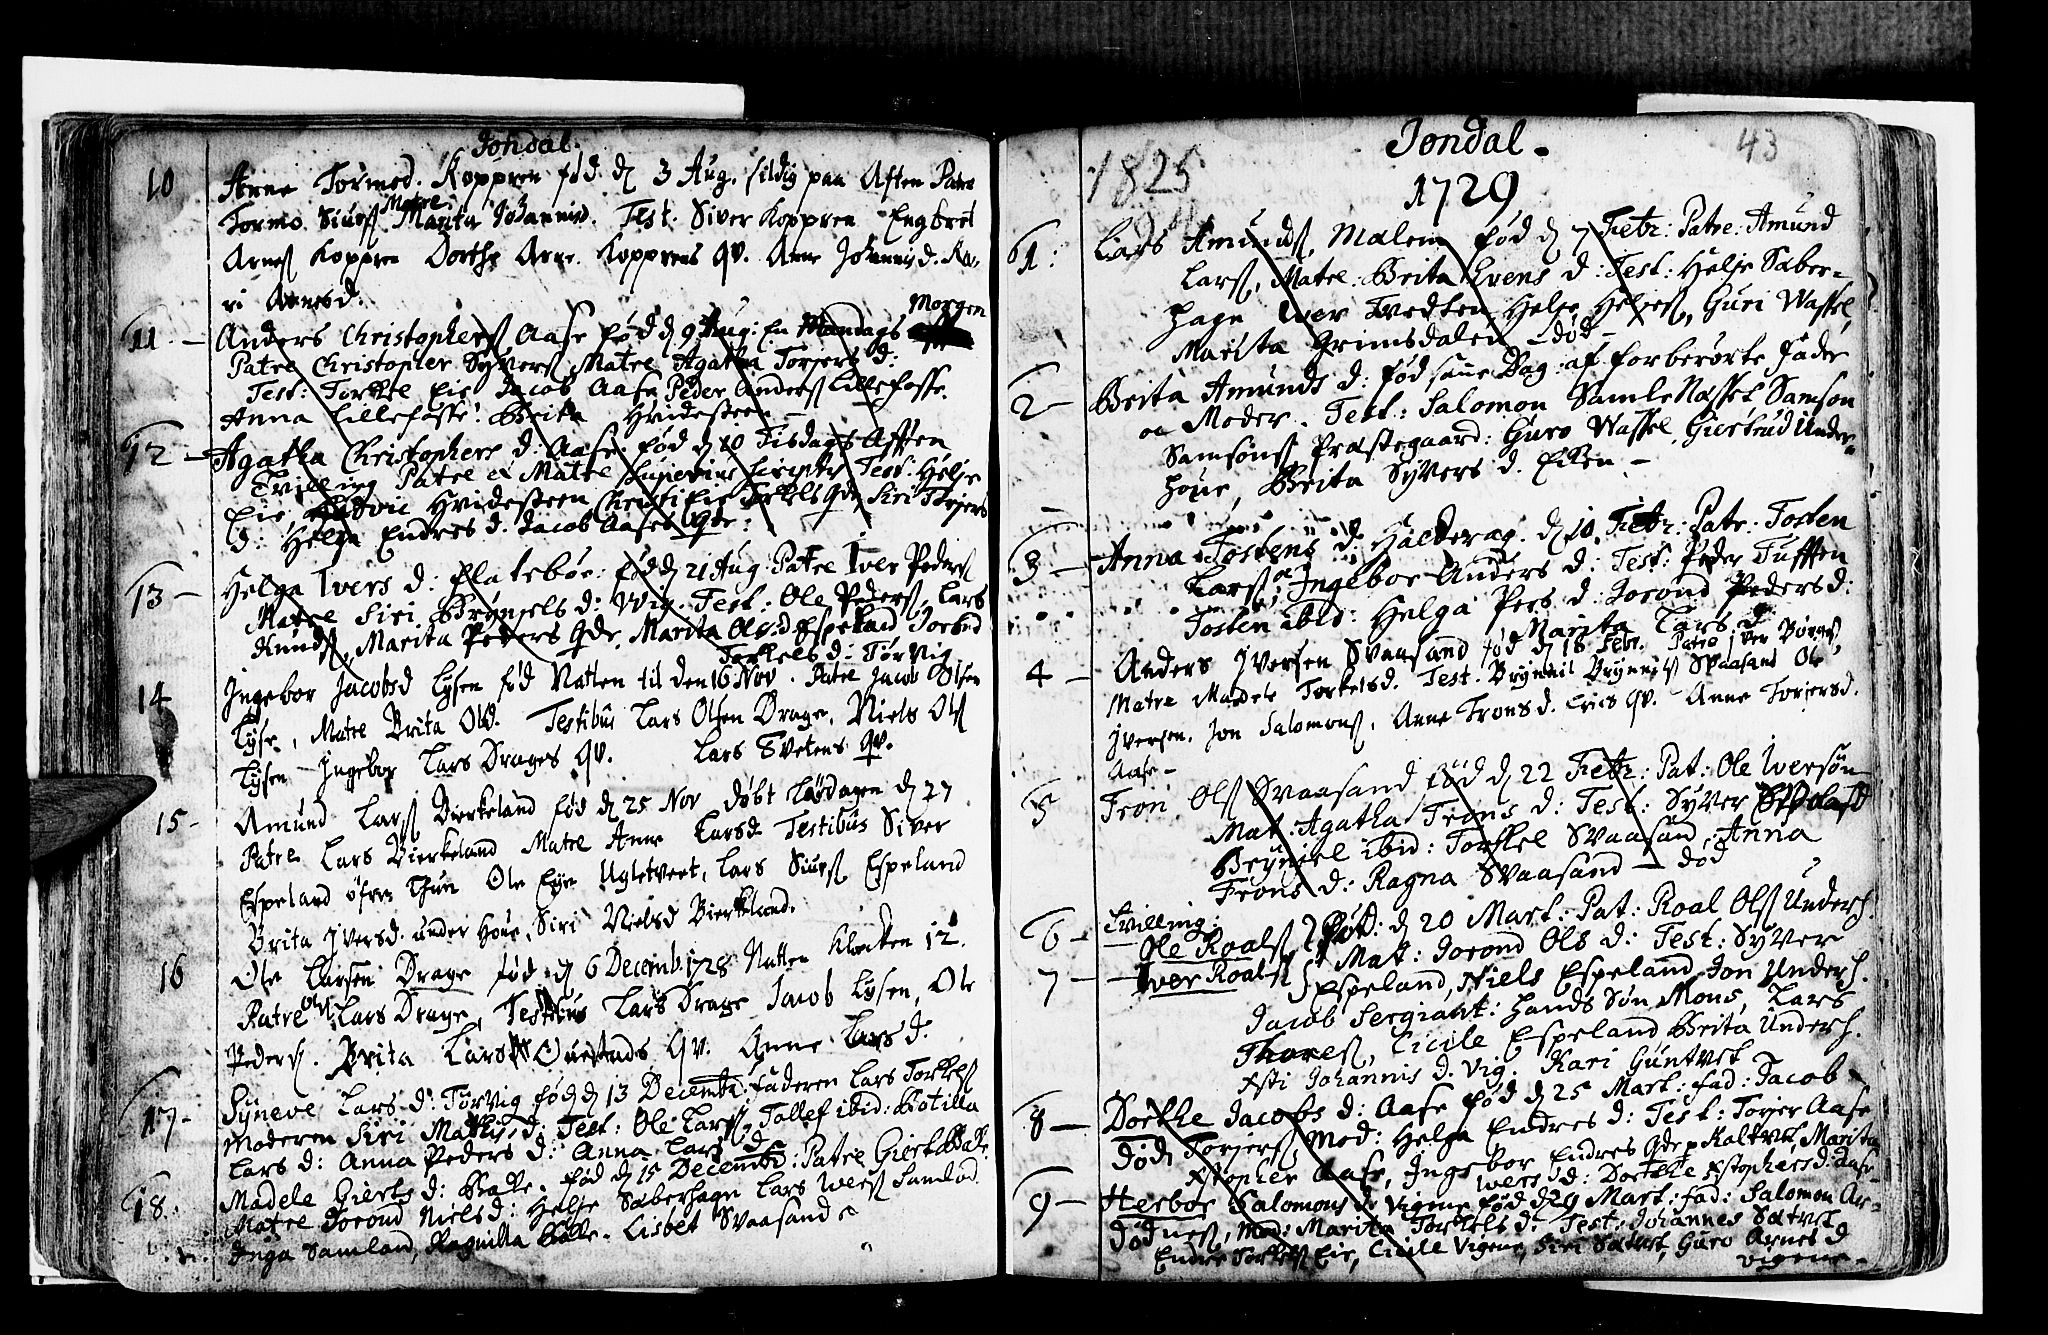 Jondal.
10 Anne Tormod. Koppren fød d 3 Aug. sildig paa Aften Patre
Tormo Siurs Matre Marita Johannisd. Test. Siver Koppren Engbret
Arnes Koppren Dorthe Arne Kopprens qv. Anne Johannisd. Ka-
ri Arnesd.
11. - Anders Christophers Aase fød d 9 Aug: En Mandags Morgen
Patre Christopher Syvers, Matre Agatha Torjers d:
Test: Torkel Eie Jacob Aase Peder Anders Lillefosse.
Anna Lillefosse. Brita Hvidesteen -
12 - Agatha Christophers d: Aase. fød d 10 Tisdags Afften
Tvilling Patre et Matre superius scriptis Test: Helje
Eie, Hvidesteen Christi Eie Torkels qde, Siri Torjers
d: Helga Endres d: Jacob Aases qde:
13 - Helga Ivers d: Flatebøe: fød d 21 Aug. Patre Iver Peders
Matre Siri Brynjels d: Vig. Test: Ole Peders, Lars
Knuds, Marita Peders qde, Marita Ols d Espeland Jorbed
Torkels d: Torvig
14 Ingebor Jacobsd Lysen fød Natten til den 16 Nov. Patre Jacob Olsen
Lysen, Matre Brita Olsd. Testibus Lars Olsen Drage, Niels Ols
Lysen Ingebor Lars Drages qv. Lars Tvetens qv.
15 - Amund Lars Bierkeland fød d 25 Nov døbt Løvdagen d 27
Patre Lars Bierkeland Matre Anne Larsd Testibus Siver
Espeland øfre Thun Ole Eye Ugletveet, Lars Siurs Espeland
Brita Iversd. under Houe, Siri Nielsd Bierkeland.
16 Ole Larsen Drage fød d 6 Decemb. 1728 Natten Klocken 12.
Patre Ols Lars Drage, Testibus Lars Drage Jacob Lysen, Ole
Peders. Brita Lars qv. Anne Lars d.
17 - Syneve Lars d: Torvig fød d 13 Decembr: faderen Lars Torkels
Moderen Siri Mathis d: Test: Ole Lars, Tollef ibid: Botilla
Lars d: Anna Peders d: Anna Lars d
18. Madele Gierts d: Bakke. fød d 15 Decembr: Patre Giert Bakke
Matre Jorond Niels d: Helje Saberhagn Lars Ivers Samland.
Inga Samland, Ragnilla Bakke. Lisbet Svaasand
Jondal.
43
1825
1729
1: Lars Amunds, Malem fød d 7 Febr: Patre: Amund
Lars, Matre: Brita Evens d: Test: Helje Saber-
hagn Iver Tvedten Helje Heljes, Guri Wassel,
Marita Grimsdalen død -
2 - Brita Amunds d: fød samme Dag: af forberørte Fader
oc Moder. Test: Salomon SamleNasset Samson
Samsøns Præstegaard: Guro Wassel, Giertrud Under-
houe, Brita Syvers d. Eien -
3 - Anna Tostens d: d 10 Febr: Patr: Tosten
Lars, Ingebor Anders d: Test: Peder Tufften
Tosten ibid: Helga Pers d: Jorond Peders d:
Marita Lars d
4 - Anders Iversen Svaasand fød d 18 Febr. Patre Iver Børges,
Matre Madele Torkelsd. Test. Brynnil Brynnils Svaasand Ole
Iversen, Jon Salomons, Anne Tronsd. Erics qv. Anne Torjersd.
Aase -
5 Tron Ols Svaasand fød d 22 Febr: Pat: Ole Iversøn
Mat: Agatha Trons d: Test: Syver Espeland
Brynjel ibid: Torkel Svaasand, Anna
Trons d: Ragna Svaasand - død
Tvilling:
6 - Ole Roals fød: d 20 Mart: Pat: Roal Ols Underh.
7 - Iver Roals Mat: Jorond Ols d: Test: Syver
Espeland, Niels Espeland, Jon Underh.
Jacob Sergiant: Hands Søn Mons, Lars
Thores, Cicile Espeland Brita Underh.
Xsti Johannis d. Vig. Kari Guntvet
8 - Dorthe Jacobs d: Aase fød d 25 Mart: fad: Jacob
død Torjers, Mod: Helga Endres d: Test: Torjer Aase
Xstopher Aase, Ingebor Endres qde Kaltvet, Marita
Ivers d: Dorthe Xstophers d: Aase
9 - Herbor Salomons d: Vigene fød d 29 Mart: fad: Salomon Ar-
død nes, Mod: Marita Torkels d: Test: Johannes Satvet
Endre Torkels Eie, Cicile Vigene, Siri Satvet, Guro Arnes d
Vigene -